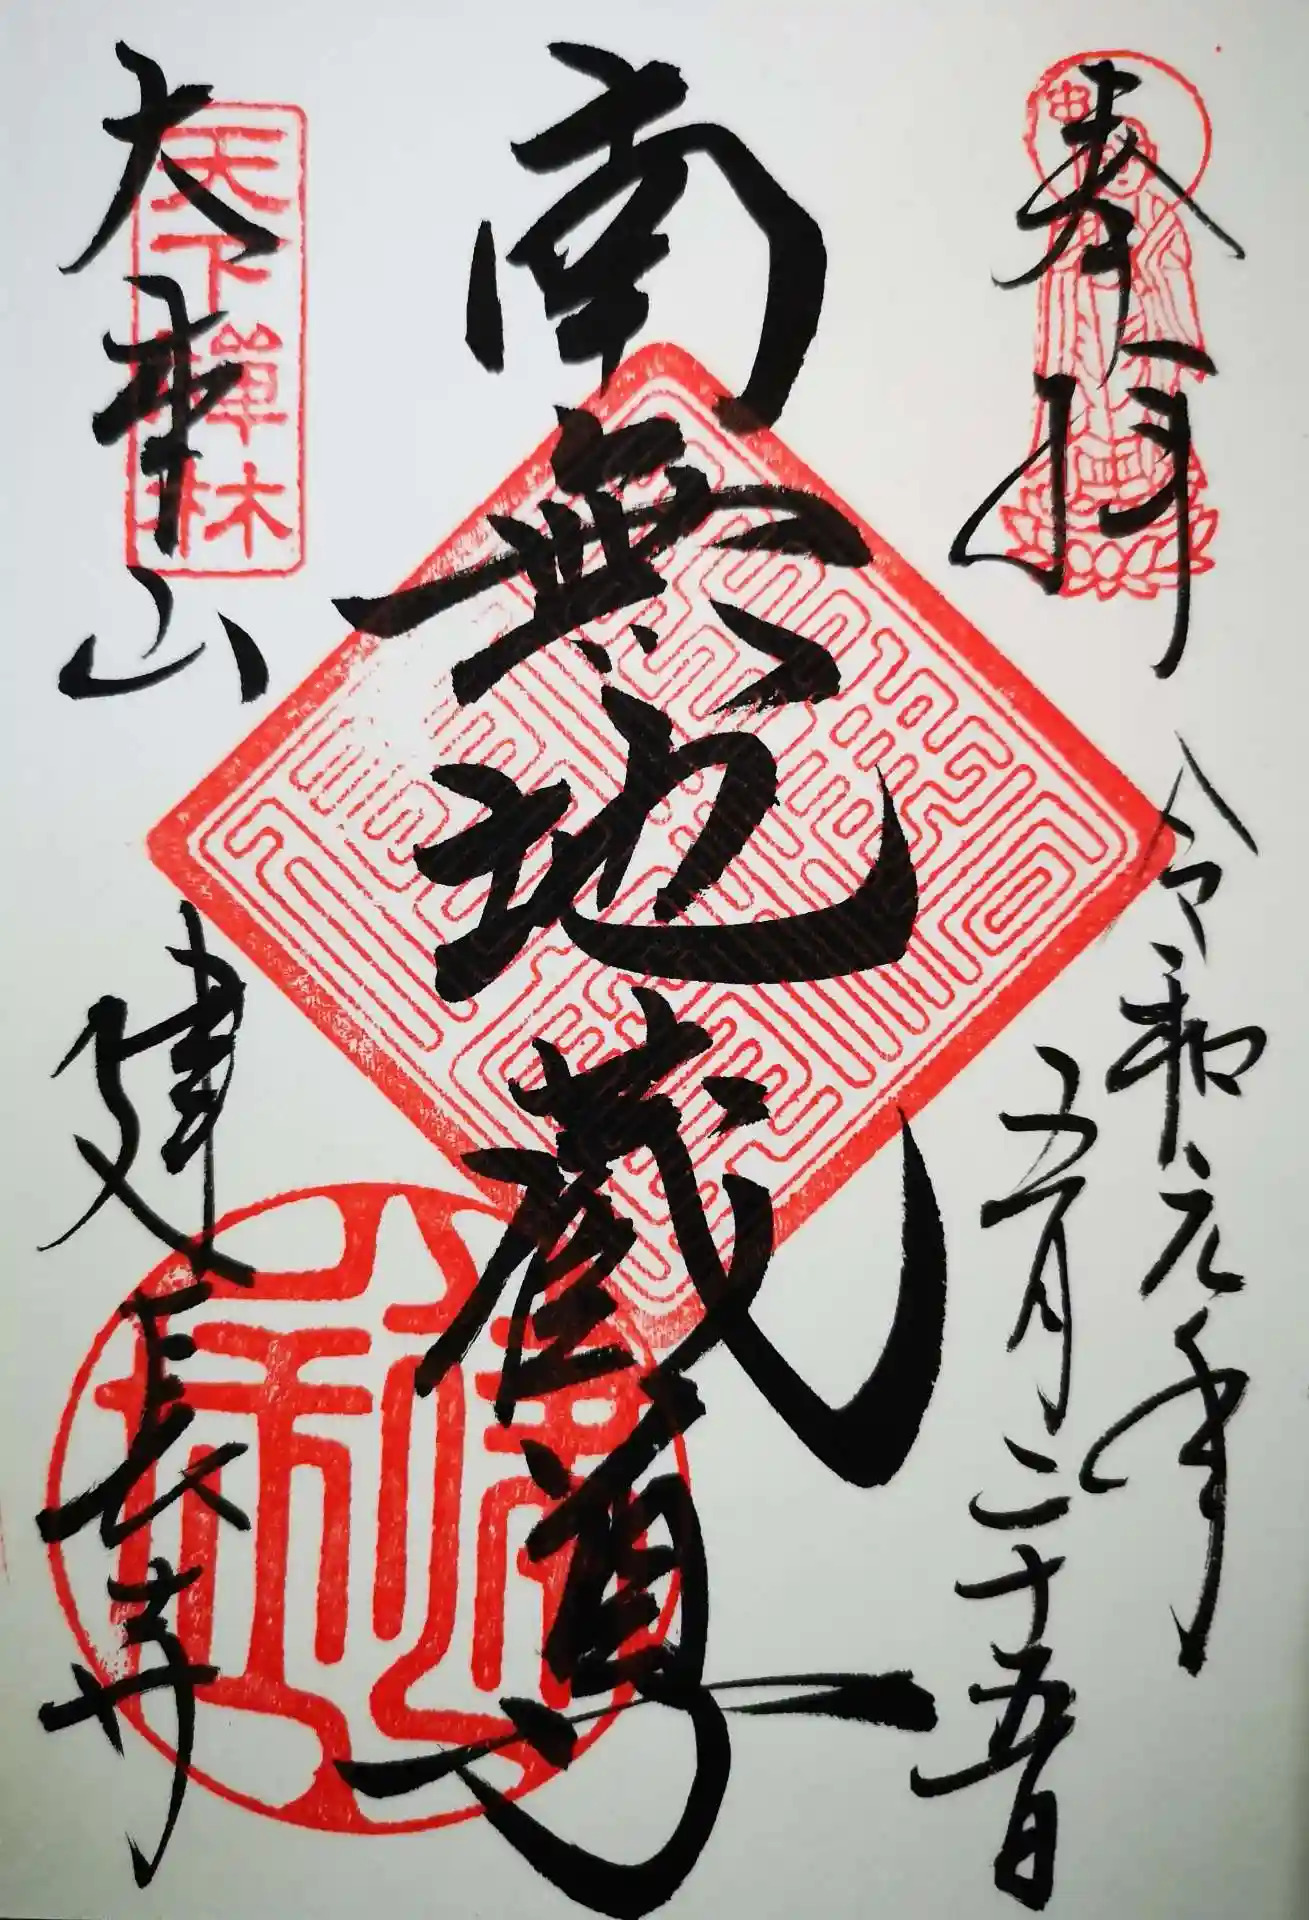 奉拝
令和元年
五月二十五日
南無地蔵尊
天下禪林
大本山
建長寺